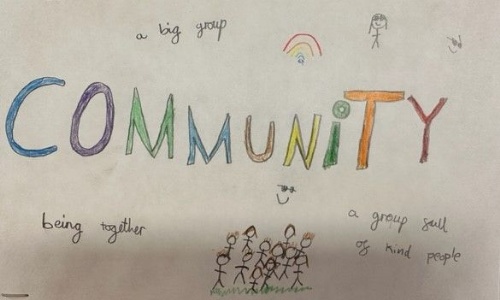 a big group
COMMUNiTY
being together
a group full
of kind people